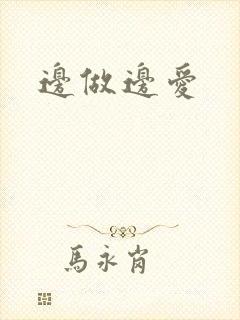 邊做邊愛
馬永肖